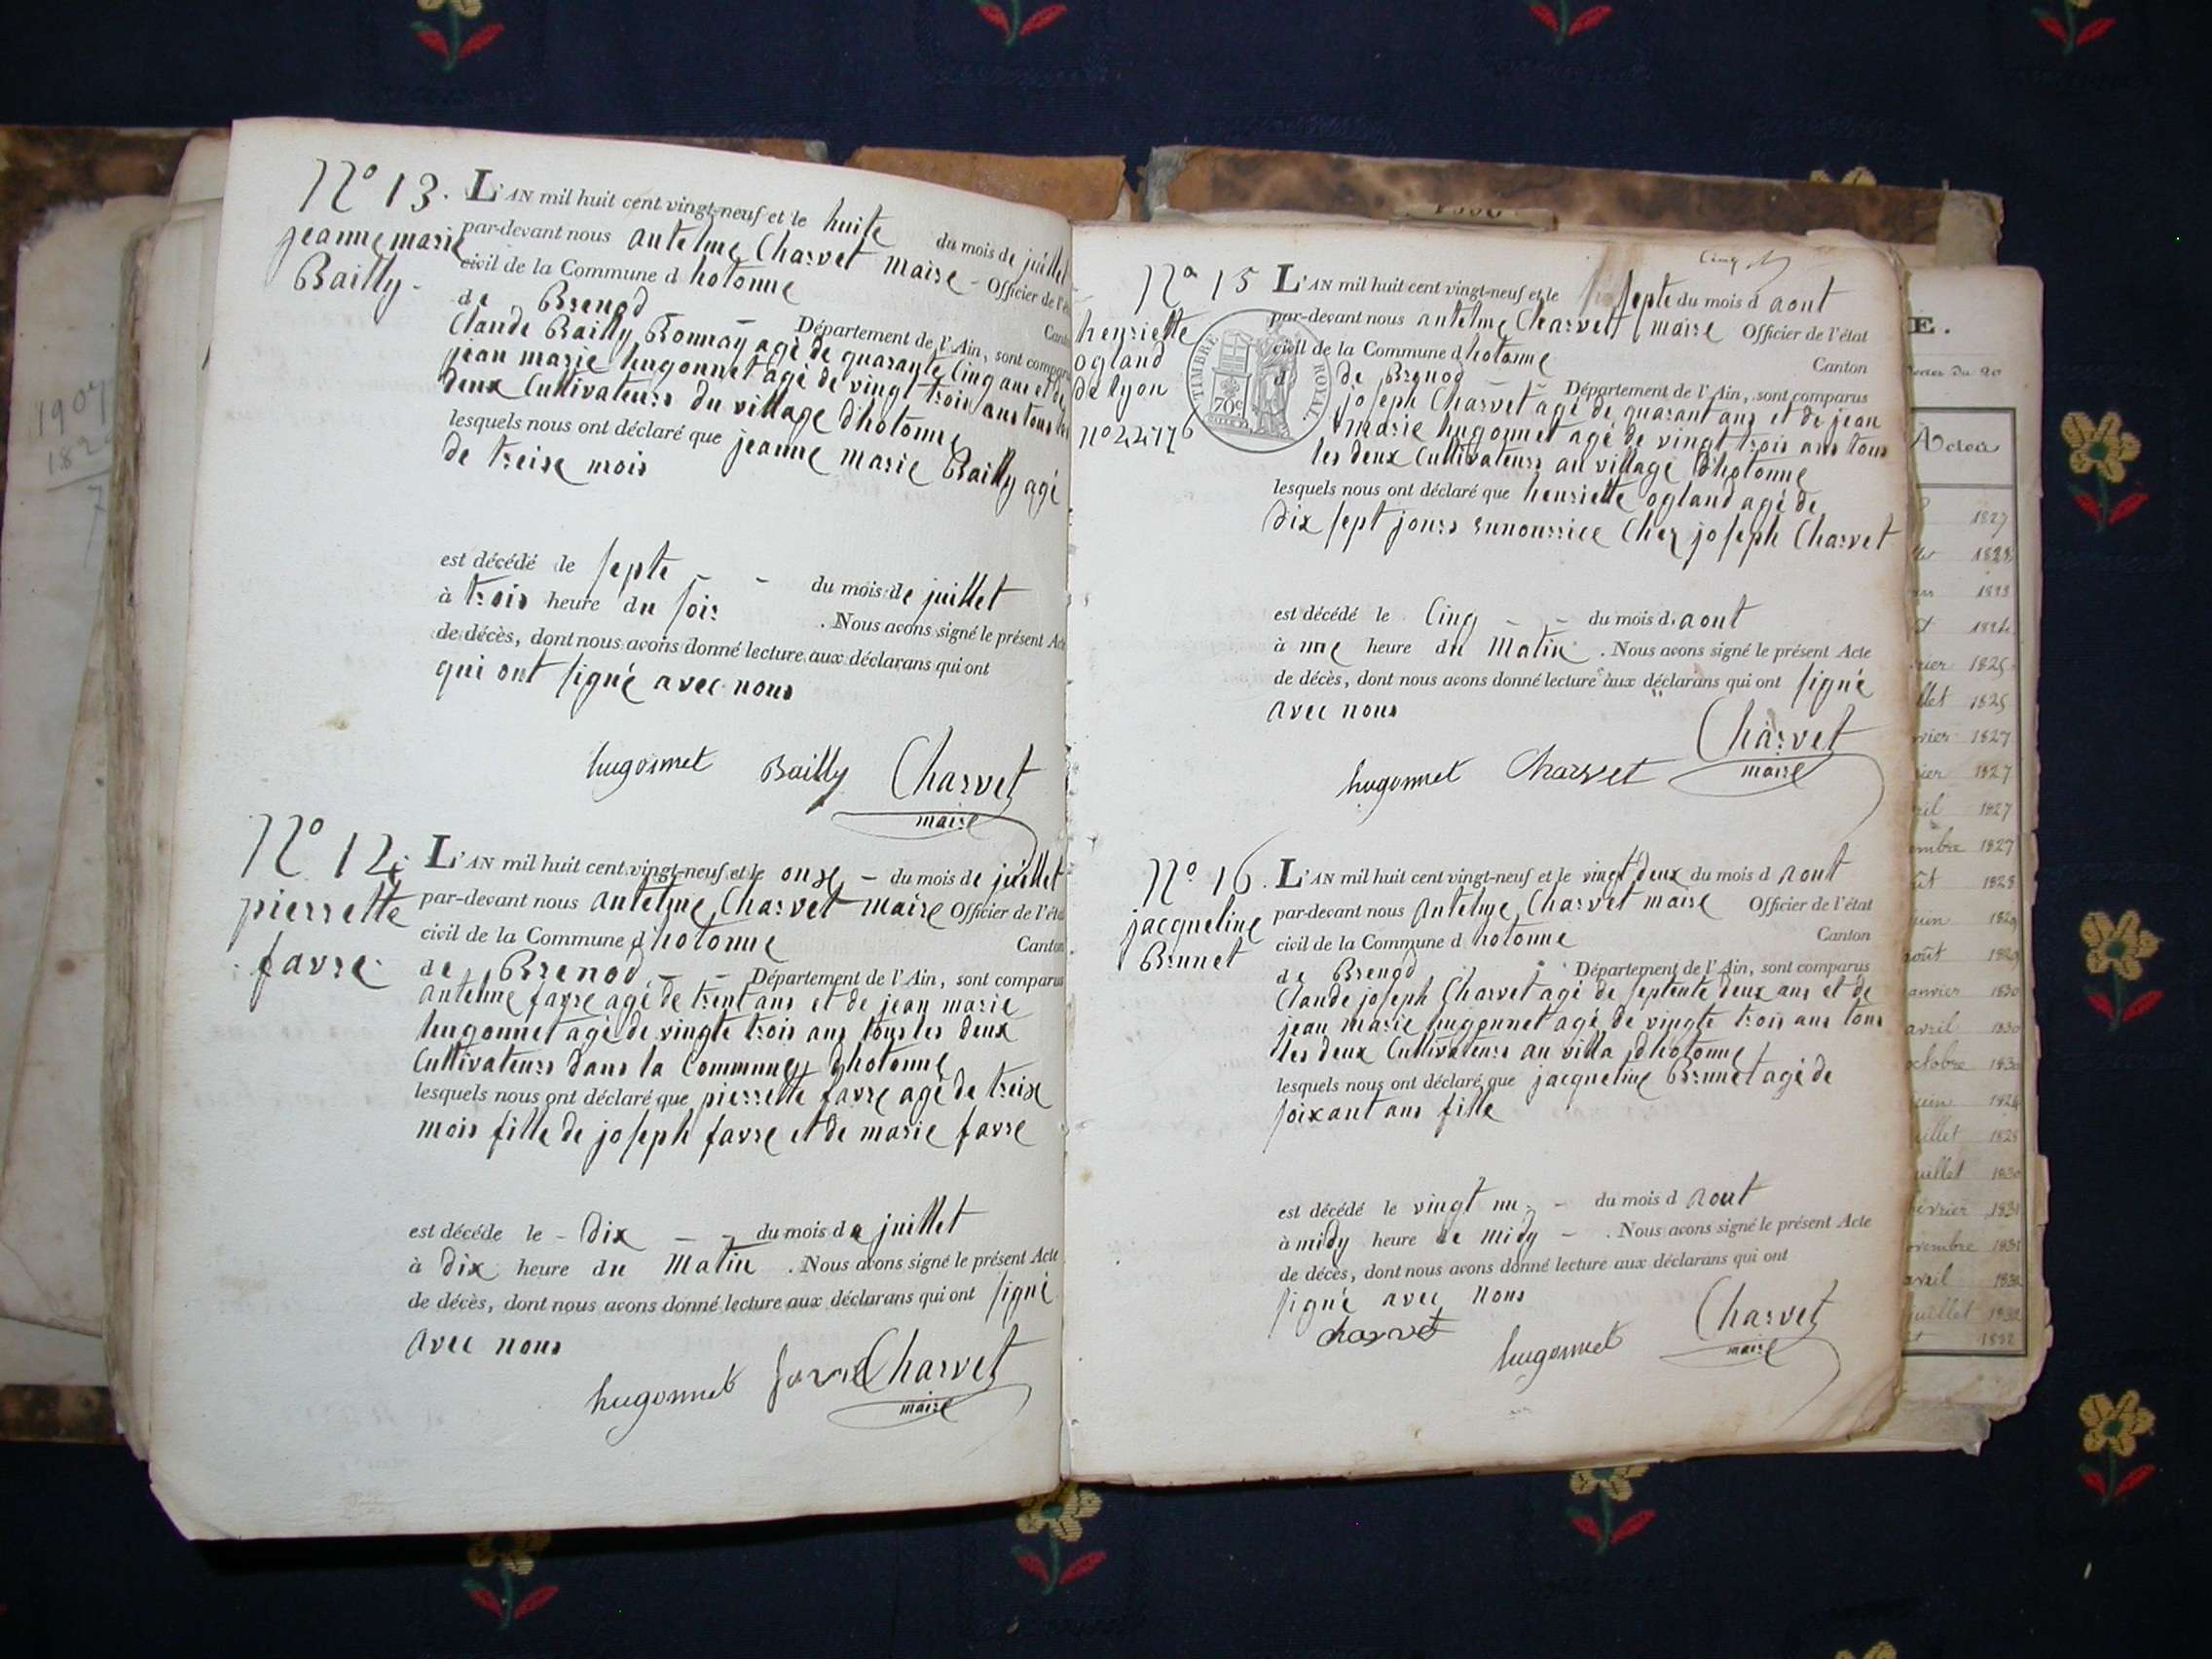 1907
182
7
N° 13.
jeanne marie
Bailly.
L'AN mil huit cent vingt-neuf et le huite du mois de juillet
par-devant nous antelme Charvet maire - Officier de l'ét
civil de la Commune d hotonne
Cant
de Brenod - - Département de l'Ain, sont compar
Claude Bailly Bonnay agé de quarante Cinq ans et de
jean marie hugonnet agé de vingt trois ans tous les
deux Cultivateurs du village dhotonne
lesquels nous ont déclaré que jeanne marie Bailly agé
de treise mois
est décédé le septe - - du mois de juillet
à trois heure du soir . Nous avons signé le présent Acte
de décès, dont nous avons donné lecture aux déclarans qui ont
qui ont signé avec nous
hugonnet Bailly Charvet
maire
N° 14.
pierrette
favre
L'AN mil huit cent vingt-neuf et le onse - du mois de juillet
par-devant nous antelme Charvet maire Officier de l'éta
civil de la Commune d'hotonne Canton
de Brenod - - Département de l'Ain, sont comparus
antelme favre agé de trent ans et de jean marie
hugonnet agé de vingte trois ans tous les deux
Cultivateurs dans la Commune dhotonne
lesquels nous ont déclaré que pierrette favre agé de treise
mois fille de joseph favre et de marie favre
est décéde le - dix - - du mois de juillet
à dix heure du Matin . Nous avons signé le présent Acte
de décès, dont nous avons donné lecture aux déclarans qui ont signé
avec nous
hugonnet favre Charvet
maire
N° 15
henriette
ogland
de lyon
TIMBRE ROYAL
70c
L'AN mil huit cent vingt-neuf et le septe du mois d aout
par-devant nous antelme Charvet maire Officier de l'état
civil de la Commune d hotonne Canton
d de Brenod - - Département de l'Ain, sont comparus
joseph Charvet agé de quarant ans et de jean
marie hugonnet agé de vingt trois ans tous
les deux Cultivateurs au village Dhotonne
lesquels nous ont déclaré que henriette ogland agé de
dix sept jours ennourrice Chez joseph Charvet
est décédé le Cinq - - du mois d. aout
à une heure du Matin . Nous avons signé le présent Acte
de décès, dont nous avons donné lecture aux déclarans qui ont signé
avec nous
hugonnet Charvet Charvet
maire
N° 16.
jacqueline
Brunet
L'AN mil huit cent vingt-neuf et le vingt deux du mois d aout
par-devant nous Antelme Charvet maire Officier de l'état
civil de la Commune d hotonne Canton
de Brenod Département de l'Ain, sont comparus
Claude joseph Charvet agé de septente deux ans et de
jean marie hugonnet agé de vingte trois ans tous
les deux Cultivateurs au villa dhotonne
lesquels nous ont déclaré que jacqueline Brunet agé de
soixant ans fille
est décédé le vingt un - - du mois d aout
à midy heure de midy - . Nous avons signé le présent Acte
de décès, dont nous avons donné lecture aux déclarans qui ont
signé avec nous
charvet hugonnet Charvet
maire
E.
1827
1825
1825
1827
1827
1827
embre 1827
1828
juin 1829
août 1829
janvier 1830
avril 1830
octobre 1830
juillet 1830
février 1831
novembre 1831
avril 1832
juillet 1832
1832